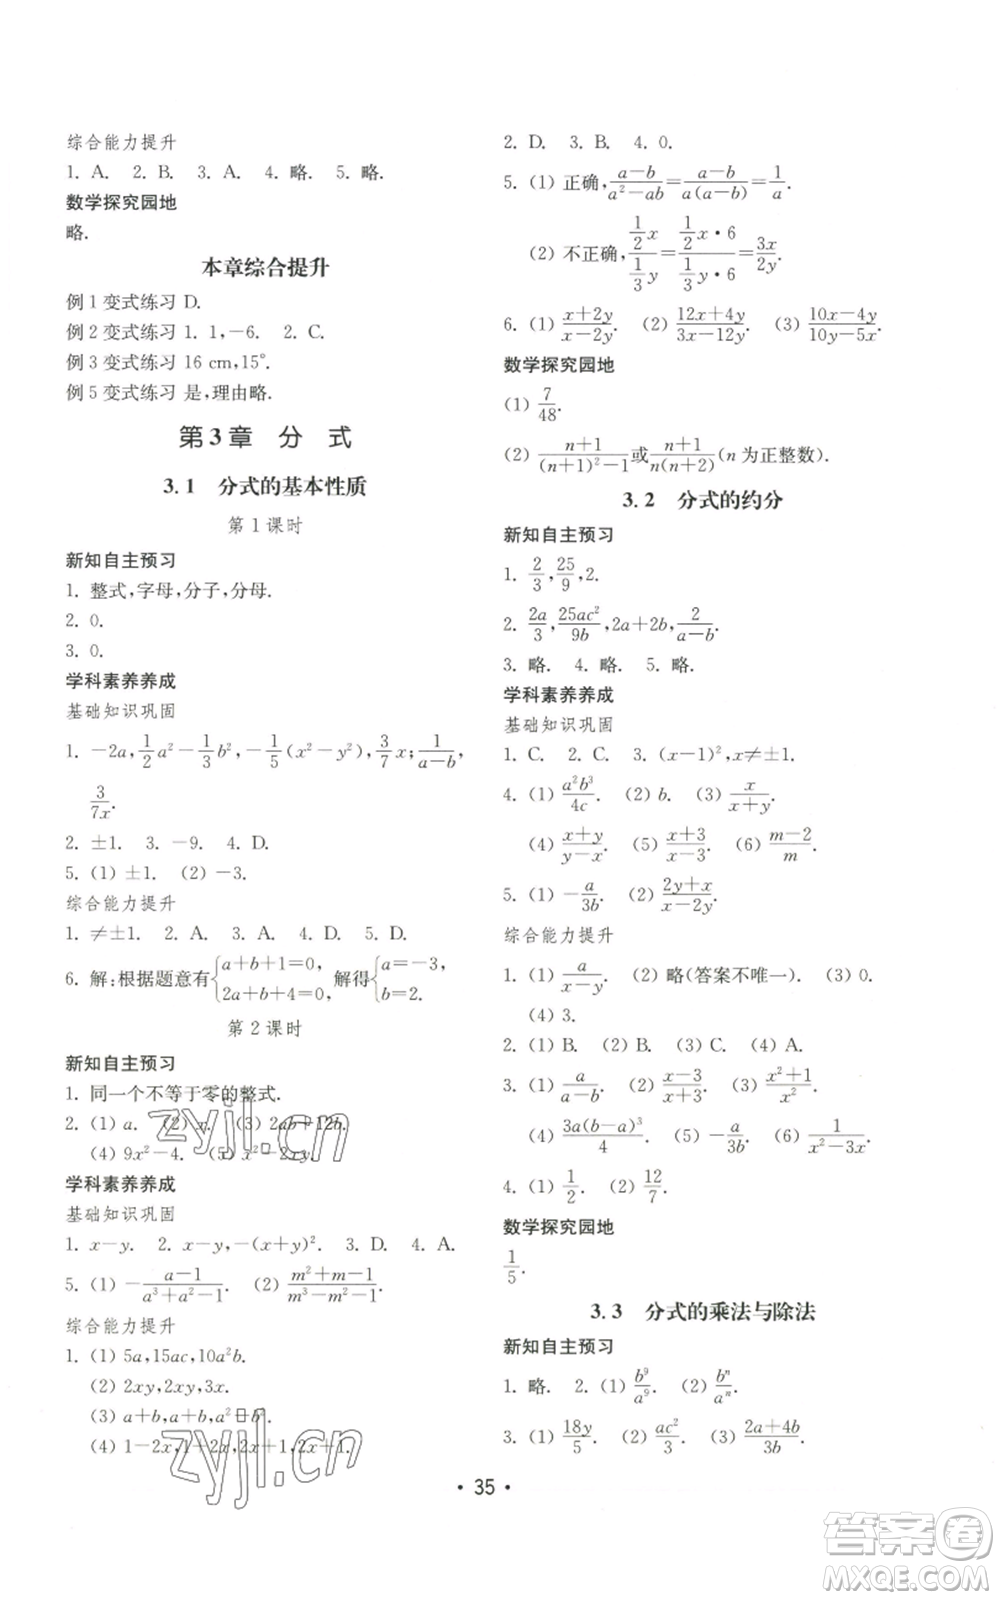 综合能力提升
1. A.  2. B.  3. A.  4. 略.  5. 略.
数学探究园地
略.
本章综合提升
例 1 变式练习 D.
例 2 变式练习 1. 1,-6.  2. C.
例 3 变式练习 16 cm,15°.
例 5 变式练习 是,理由略.
第 3 章 分 式
3.1 分式的基本性质
第 1 课时
新知自主预习
1. 整式,字母,分子,分母.
2. 0.
3. 0.
学科素养养成
基础知识巩固
1. -2a, 1/2 a²-1/3 b², -1/5(x²-y²), 3/7 x; 1/(a-b),
3/(7x).
2. ±1.  3. -9.  4. D.
5. (1) ±1.  (2) -3.
综合能力提升
1. ≠±1.  2. A.  3. A.  4. D.  5. D.
6. 解:根据题意有{a+b+1=0, 2a+b+4=0, 解得{a=-3, b=2.
第 2 课时
新知自主预习
1. 同一个不等于零的整式.
2. (1) a.  (2) x.  (3) 2ab+12b.
(4) 9x²-4.  (5) 2x²-2xy.
学科素养养成
基础知识巩固
1. x-y.  2. x-y,-(x+y)².  3. D.  4. A.
5. (1) -(a-1)/(a³+a²-1).  (2) (m²+m-1)/(m³-m²-1).
综合能力提升
1. (1) 5a,15ac,10a²b.
(2) 2xy,2xy,3x.
(3) a+b,a+b,a²-b².
(4) 1-2x,1+2x,2x+1,2x+1.
2. D.  3. B.  4. 0.
5. (1) 正确, (a-b)/(a²-ab)=(a-b)/(a(a-b))=1/a.
(2) 不正确, (1/2 x)/(1/3 y)=(1/2 x·6)/(1/3 y·6)=3x/2y.
6. (1) (x+2y)/(x-2y).  (2) (12x+4y)/(3x-12y).  (3) (10x-4y)/(10y-5x).
数学探究园地
(1) 7/48.
(2) (n+1)/((n+1)²-1)或(n+1)/(n(n+2))(n 为正整数).
3.2 分式的约分
新知自主预习
1. 2/3, 25/9, 2.
2. 2a/3, 25ac²/9b, 2a+2b, 2/(a-b).
3. 略.  4. 略.  5. 略.
学科素养养成
基础知识巩固
1. C.  2. C.  3. (x-1)²,x≠±1.
4. (1) a²b³/4c.  (2) b.  (3) x/(x+y).
(4) (x+y)/(y-x).  (5) (x+3)/(x-3).  (6) (m-2)/m.
5. (1) -a/3b.  (2) (2y+x)/(x-2y).
综合能力提升
1. (1) a/(x-y).  (2) 略(答案不唯一).  (3) 0.
(4) 3.
2. (1) B.  (2) B.  (3) C.  (4) A.
3. (1) a/(a-b).  (2) (x-3)/(x+3).  (3) (x²+1)/x².
(4) 3a(b-a)³/4.  (5) -a/3b.  (6) 1/(x²-3x).
4. (1) 1/2.  (2) 12/7.
数学探究园地
1/5.
3.3 分式的乘法与除法
新知自主预习
1. 略.  2. (1) b⁹/a⁹.  (2) bⁿ/aⁿ.
3. (1) 18y/5.  (2) ac²/3.  (3) (2a+4b)/3b.
• 35 •
zyjl.cn
zyjl.cn
答案卷
MXQE.COM